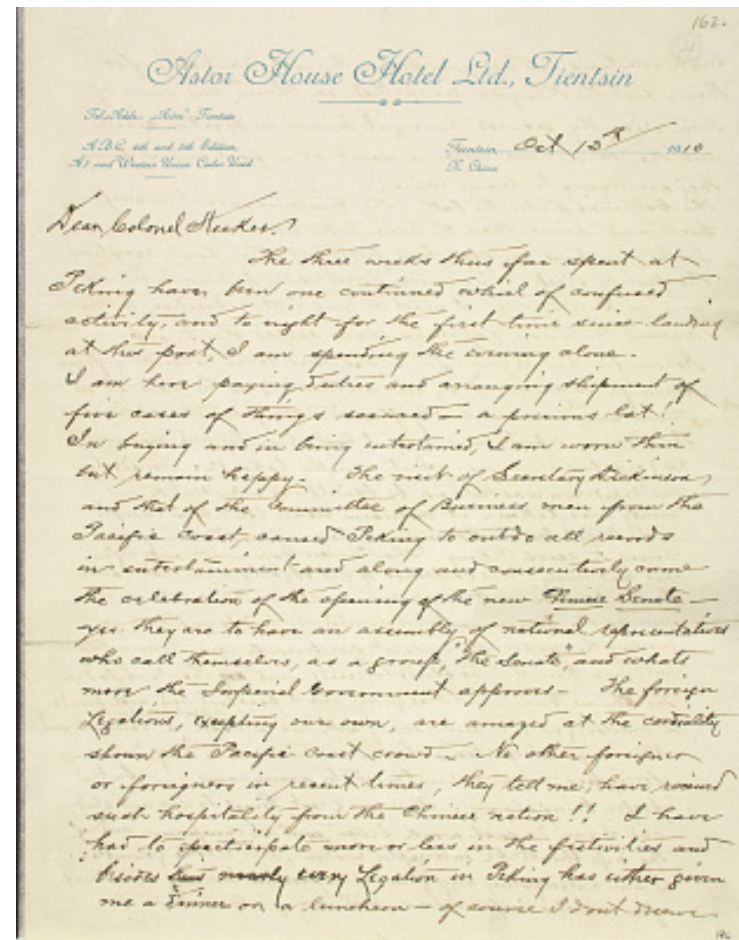 162.
Astor House Hotel Ltd., Tientsin
Tel. Addr. "Astor" Tientsin
A.B.C. 4th and 5th Edition,
A1 and Western Union Codes Used
Tientsin, Oct 13th 1910
N. China
Dear Colonel Hecker:
The three weeks thus far spent at
Peking have been one continued whirl of confused
activity, and to night for the first time since landing
at this post, I am spending the evening alone.
I am here paying duties and arranging shipment of
five cases of things secured — a precious lot!
In buying and in being entertained, I am worn thin
but remain happy. The visit of Secretary Dickinson,
and that of the Committee of Business men from the
Pacific Coast, caused Peking to outdo all records
in entertainment and along and consecutively came
the celebration of the opening of the new Chinese Senate —
yes they are to have an assembly of national representatives
who call themselves, as a group, "The Senate", and whats
more the Imperial Government approves — The foreign
Legations, excepting our own, are amazed at the cordiality
shown the Pacific Coast crowd. No other foreigner
or foreigners in recent times, they tell me, have received
such hospitality from the Chinese nation!! I have
had to participate more or less in the festivities and
besides nearly every Legation in Peking has either given
me a dinner or a luncheon — of course I dont deserve